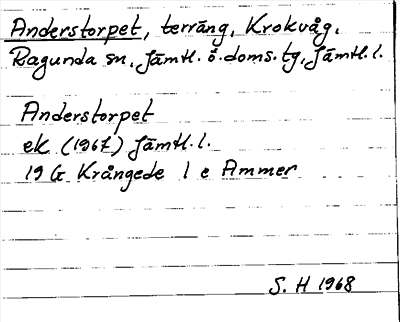 Anderstorpet, terräng, Krokvåg,
Ragunda sn, Jämtl. ö. doms. tg, Jämtl. l.
Anderstorpet
ek (1967) Jämtl. l.
19 G Krångede 1 e Ammer
S. H 1968